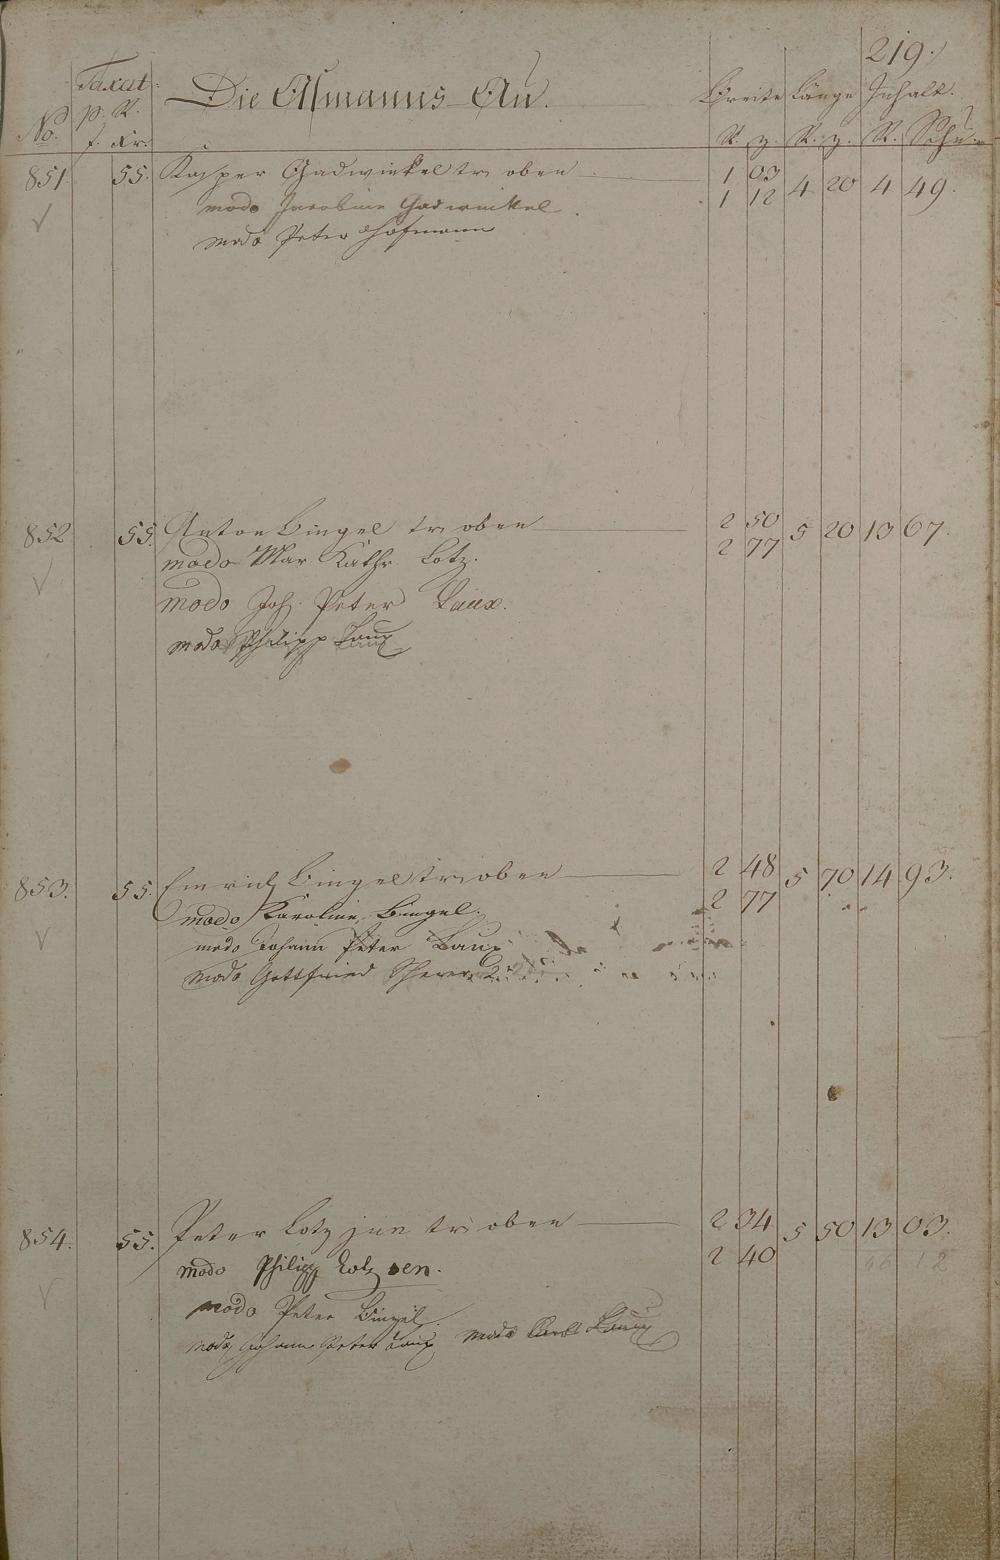 219.
Taxat. Die Assmanns-Au. Breite Länge Inhalt.
No. p. R. f. Xr. R. z. R. z. R. Schu
851 55. Kasper Gadwinkel tr oben 1 03 4 20 4 49.
modo Jacobine Gadwinkel. 1 12
modo Peter Hofmann
852 55. Anton Bingel tr oben 2 50 5 20 13 67.
modo Mar. Kathr. Lotz. 2 77
modo Joh. Peter Laux.
modo Philipp Laux
853. 55. Emrich Bingel tr oben 2 48 5 70 14 93.
modo Karoline Bingel. 2 77
modo Johann Peter Laux
modo Gottfried Scherer 2r
854. 55. Peter Lotz jun tr oben 2 34 5 50 13 03.
modo Philipp Lotz sen. 2 40
modo Peter Bingel.
modo Johann Peter Laux modo Karl Laux